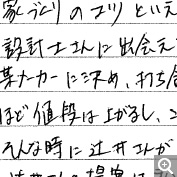 家づくりのコツといえ
設計士さんに出会え
某メーカーに決め、打ち合
ほど値段は上がるし、こ
そんな時に辻井さんが